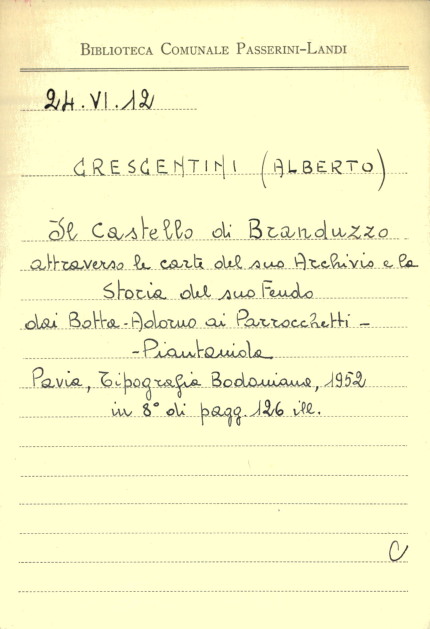 BIBLIOTECA COMUNALE PASSERINI-LANDI
24.VI.12
CRESCENTINI (ALBERTO)
Il Castello di Branduzzo
attraverso le carte del suo Archivio e la
Storia del suo Feudo
dai Botta-Adorno ai Parrocchetti -
-Piantanida
Pavia, Tipografia Bodoniana, 1952
in 8° di pagg. 126 ill.
C